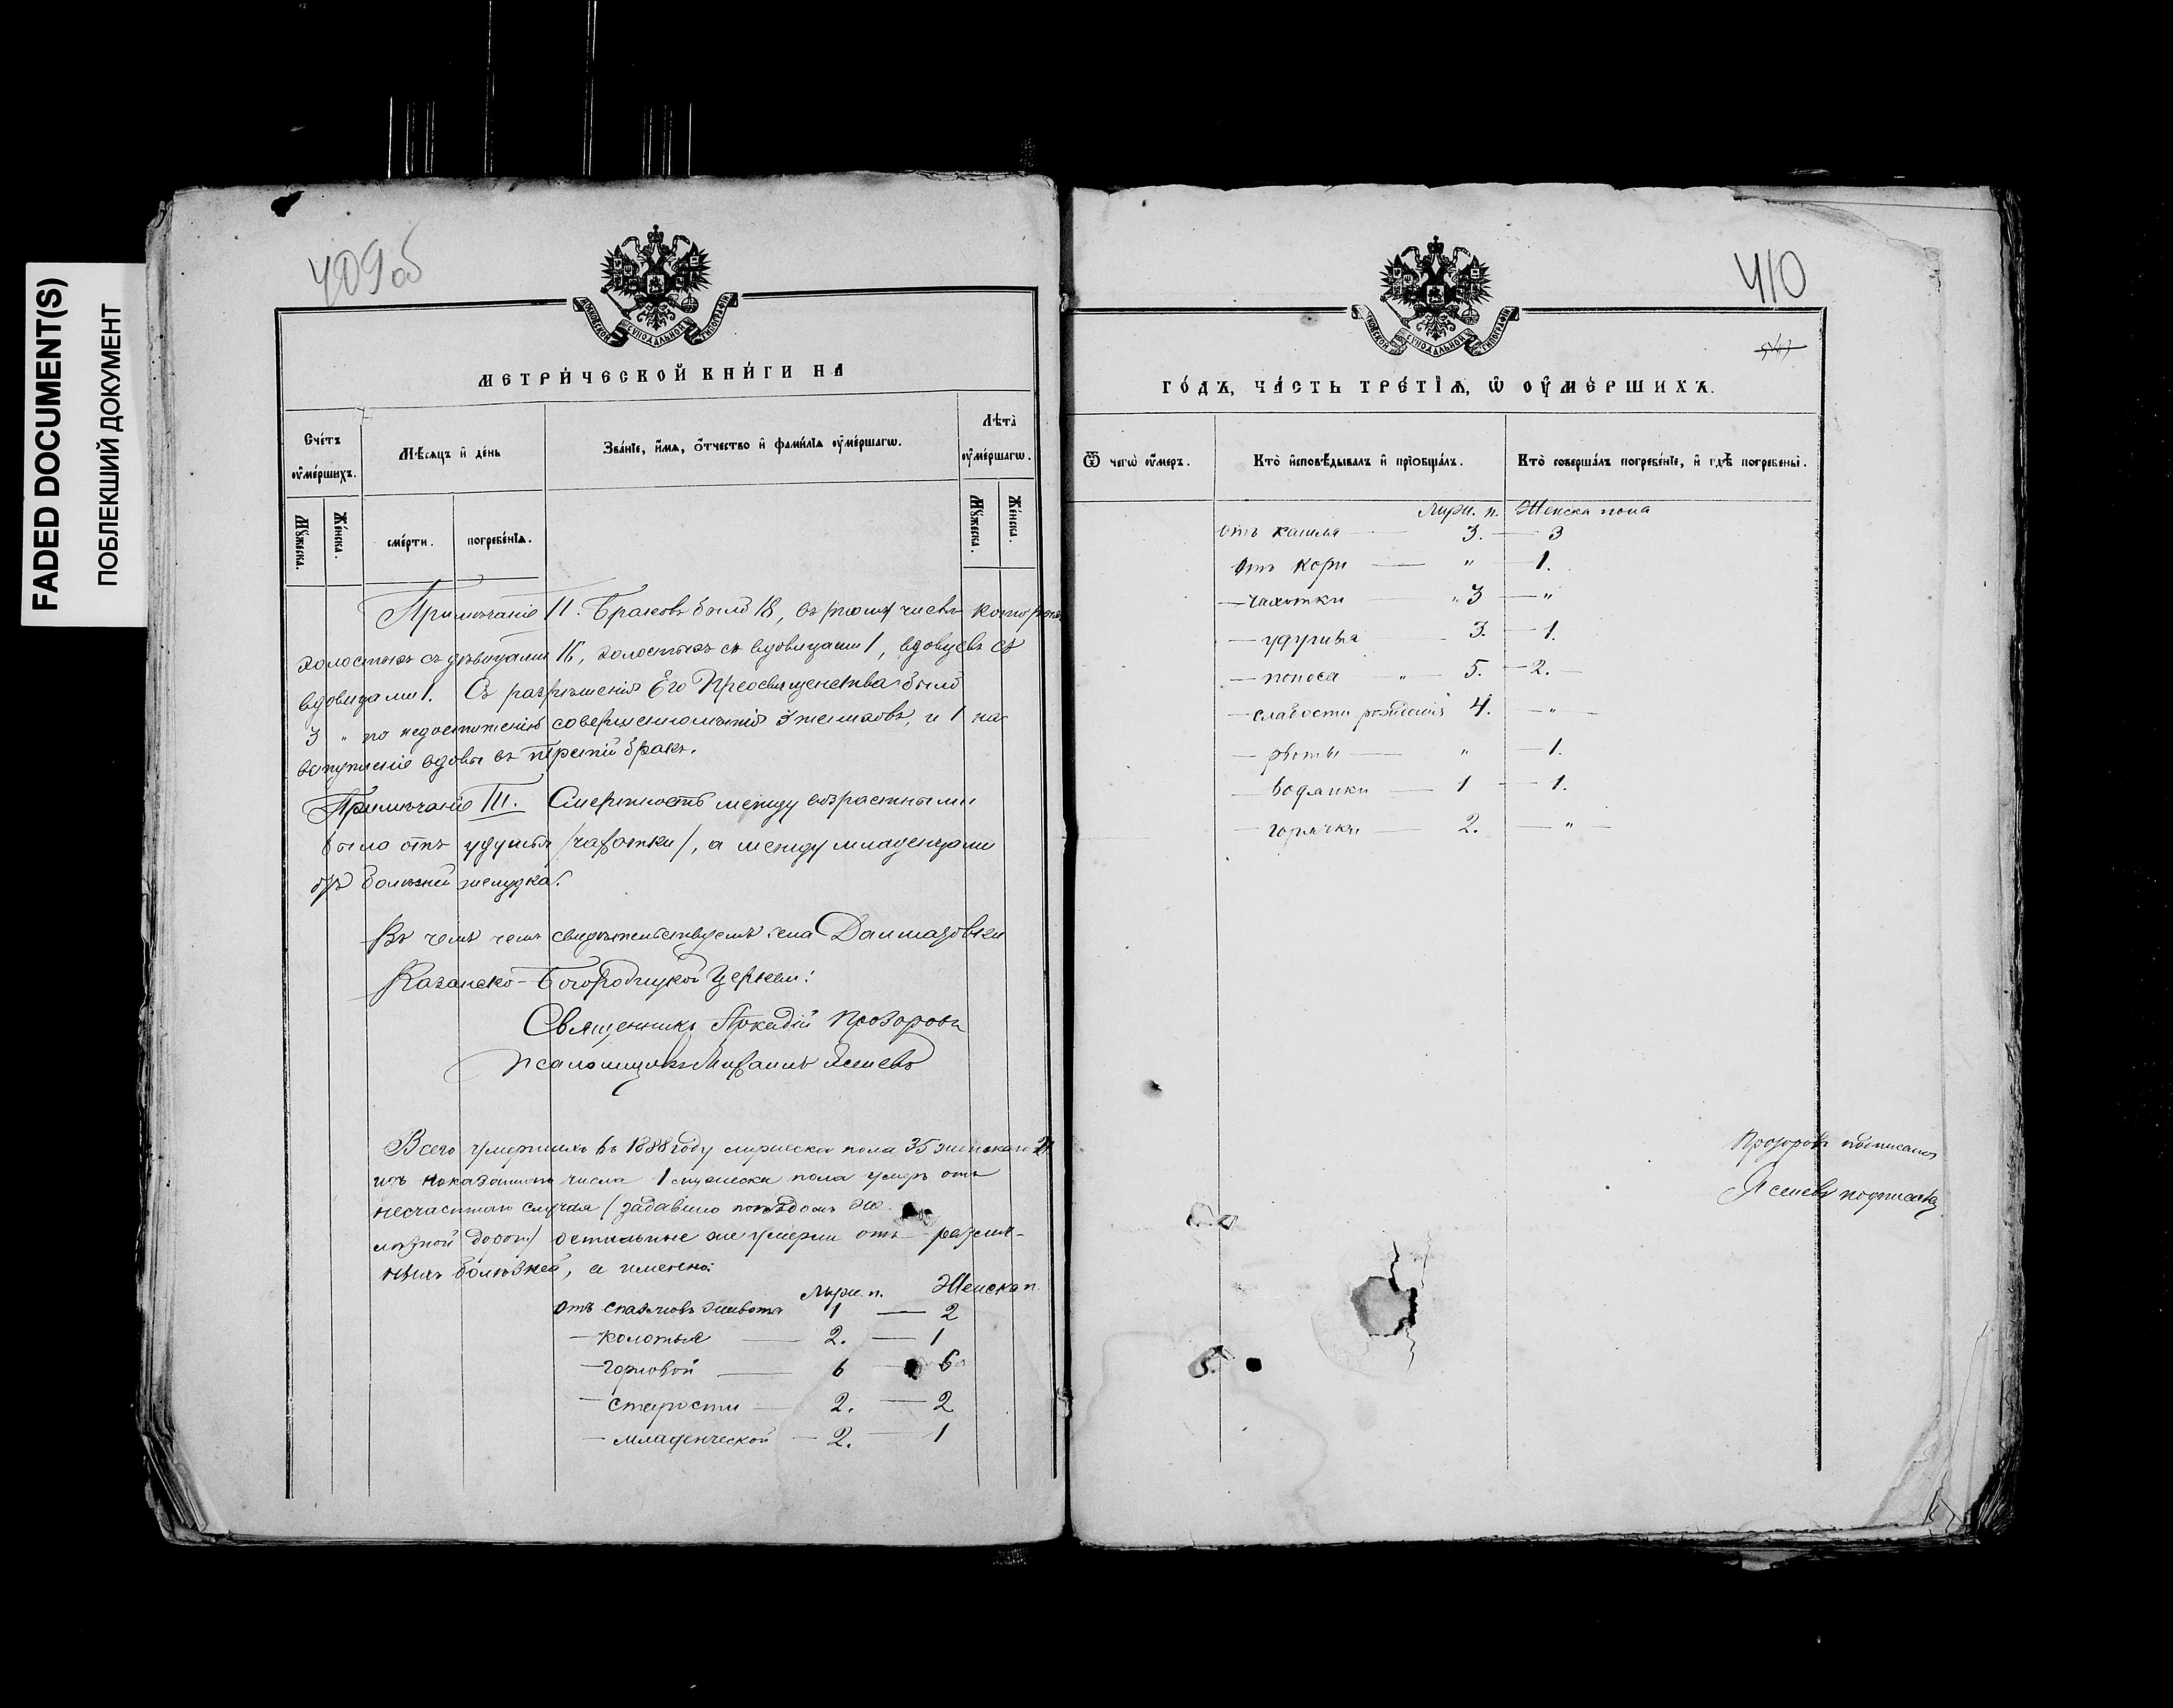 FADED DOCUMENT(S)
ПОБЛЕКШИЙ ДОКУМЕНТ
409об
МОСКОВСКОЙ СѴНОДАЛЬНОЙ ТИПОГРАФІИ
МЕТРИ́ЧЕСКОЙ КНИ́ГИ НА
Сче́тъ ᲂу҆ме́ршихъ.
Мѣ́сяцъ и҆ де́нь
Зва́нїе, и҆́мѧ, ѻ҆́тчество и҆ фами́лїѧ ᲂу҆ме́ршагѡ.
Лѣ́та ᲂу҆ме́ршагѡ.
Мꙋ́жеска.
Же́нска.
сме́рти.
погребе́нїѧ.
Мꙋ́жеска.
Же́нска.
Примѣчаніе II. Браковъ было 18, въ томъ числѣ
холостыхъ съ дѣвицами 16, холостыхъ съ вдовицами 1, вдовцевъ съ
вдовицами 1. Съ разрѣшенія Его Преосвященства было
3 " по недостиженію совершеннолѣтія 3 жениховъ, и 1 на
вступленіе вдовы въ третій бракъ.
Примѣчаніе III. Смертность между возрастными
было отъ удушья (чахотки), а между младенцами
отъ болѣзней желудка.
Въ чемъ свидѣтельствуемъ села
Казанско-Богородицкой Церкви:
Священникъ Аркадій Прозоровъ
Псаломщикъ Михаилъ Ясневъ
Всего умершихъ въ 1888 году мужеска пола 35 женскаго 21
изъ показаннаго числа 1 мужеска пола умеръ отъ
несчастнаго случая (задавило поѣздомъ же
лѣзной дороги) остальные же умерли отъ различ-
ныхъ болѣзней, а именно:
Муж. п. Женска п.
Отъ спазмовъ живота 1 — 2
— колотья — 2. — 1
— горловой — 6 — 6
— старости — 2. — 2
— младенческой — 2. — 1
410
МОСКОВСКОЙ СѴНОДАЛЬНОЙ ТИПОГРАФІИ
ГО́ДЪ, ЧА́СТЬ ТРЕ́ТЇѦ, Ѡ҆ ОУ҆МЕ́РШИХЪ.
Ѿ чегѡ̀ ᲂу҆́меръ.
Кто̀ и҆сповѣ́дывалъ и҆ прїѡбща́лъ.
Кто̀ соверша́лъ погребе́нїе, и҆ гдѣ̀ погребены̀.
Муж. п. Женска пола
Отъ кашля — 3. — 3
Отъ кори — " — 1.
— чахотки " 3 — "
— удушья — 3. — 1.
— поноса " — 5. — 2. —
— слабости рожденія 4. — " —
— рвоты — " — 1.
— водянки — 1 — 1.
— горячки — 2. — " —
Прозоровъ подписалъ
Ясневъ подписалъ